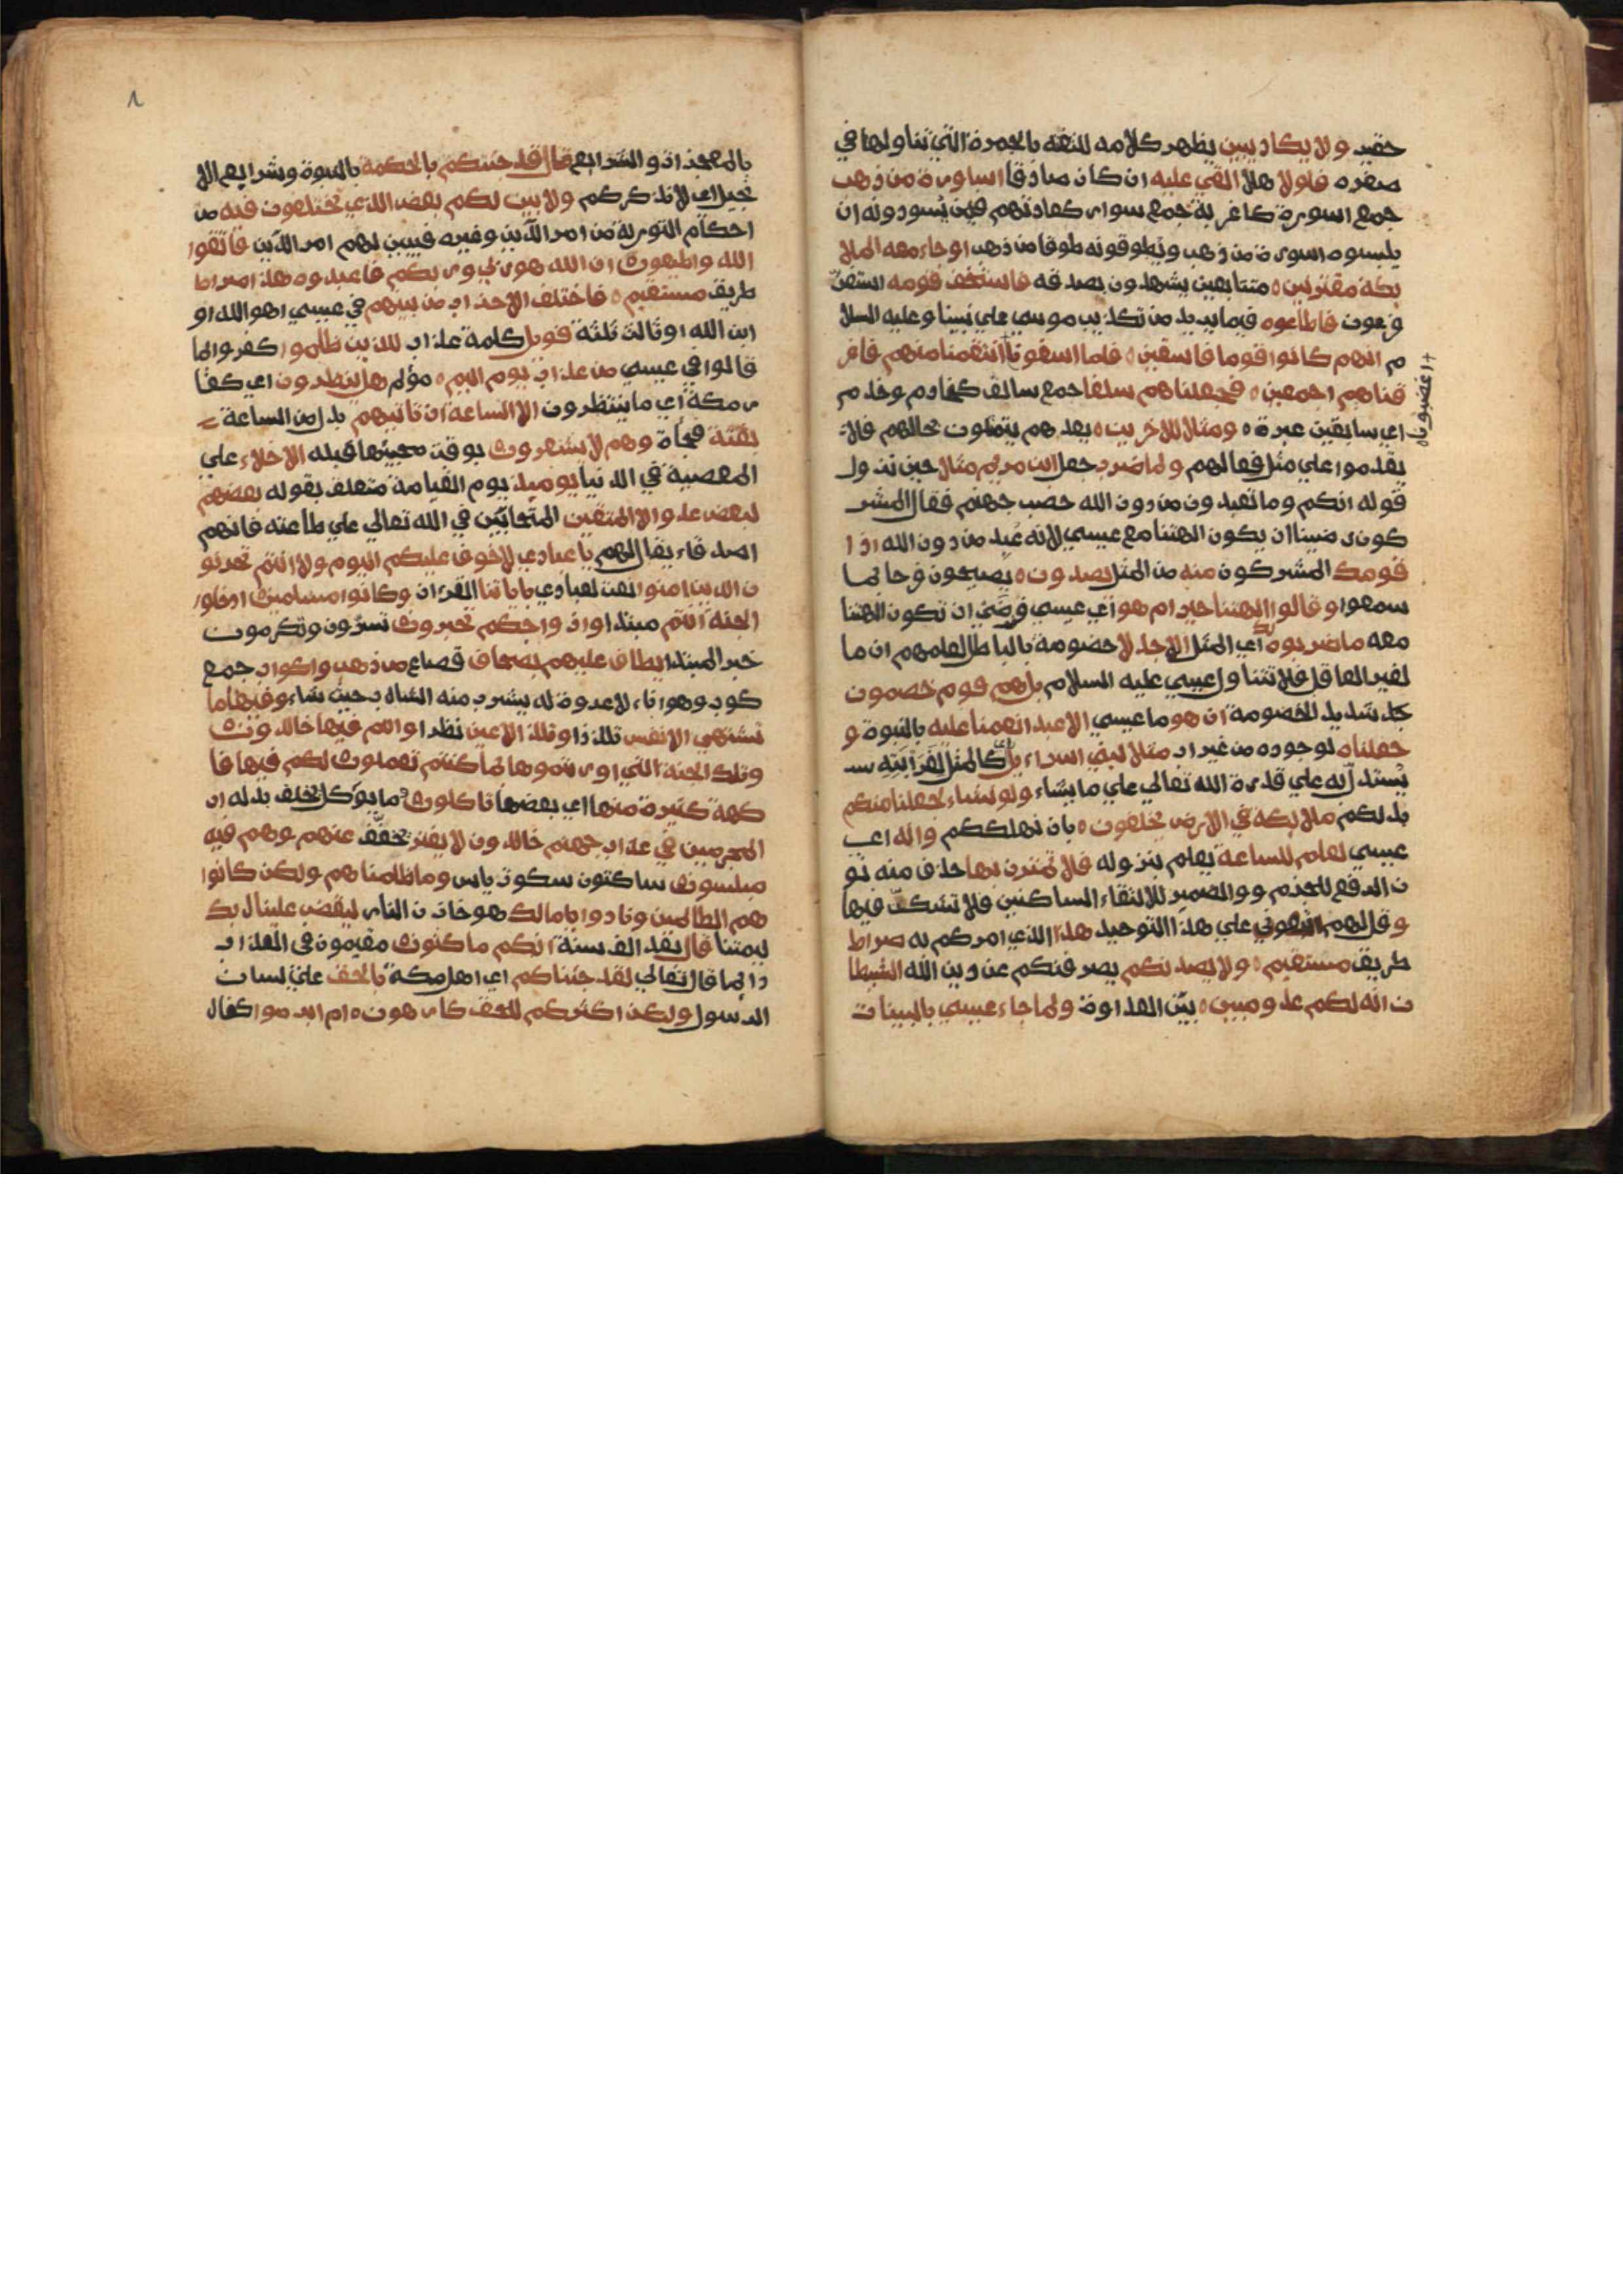 حقير ولا يكاد يبين يظهر كلامه للثغه بالجمرة التي تناولها في
صغره فلولا هلا القي عليه ان كان صادقا اساورة من ذهب
جمع اسورة كاغربة جمع سوار كعادتهم فيمن يسودونه ان
يلبسوه اسورة من ذهب ويطوقونه طوقا من ذهب او جاء معه الملا
يكة مقترنين متتابعين يشهدون بصدقه فاستخف قومه استفز
فرعون فاطاعوه فيما يريد من تكذيب موسي علي نبينا وعليه السلا
م انهم كانوا قوما فاسقين فلما اسفونا انتقمنا منهم فاغر
قناهم اجمعين فجعلناهم سلفا جمع سالف كخادم وخدم
اغضبونا
اي سابقين عبرة ومثلا للاخرين بعدهم يتمثلون بحالهم فلا
يقدموا علي مثل فعالهم ولما ضرب جعل ابن مريم مثلا حين نزول
قوله انكم وما تعبدون من دون الله حصب جهنم فقال المشر
كون رضينا ان يكون الهتنا مع عيسي لانه عبد من دون الله اذا
قومك المشركون منه من المثل يصدون يصيحون فرحا بما
سمعوا وقالوا االهتنا خير ام هو اي عيسي فرضي ان تكون الهتنا
معه ما ضربوه اي المثل لك الا جدلا خصومة بالباطل لعلمهم ان ما
لغير العاقل فلا تتناول عيسي عليه السلام بل هم قوم خصمون
جد شديد الخصومة ان هو ما عيسي الا عبد انعمنا عليه بالنبوة و
جعلناه لوجوده من غير اب مثلا لبني اسراءيل كالمثل لغرابته
يستدل به علي قدرة الله تعالي علي ما يشاء ولو نشاء لجعلنا منكم
بدلكم ملايكة في الارض يخلفون بان نهلككم وانه اي
عيسي لعلم للساعة يعلم بنزوله فلا تمترن بها حذف منه نو
ن الرفع للجزم وواو الضمير لالتقاء الساكنين فلا تشكن فيها
وقل لهم اتبعوني علي هذا التوحيد هذا الذي امركم به صراط
طريق مستقيم ولا يصدنكم يصرفنكم عن دين الله الشيطا
ن انه لكم عدو مبين بين العداوة ولما جاء عيسي بالبينات
٨
بالمعجزات والشرايع قال قد جئتكم بالحكمة بالنبوة وشرايع الا
نجيل اي لانذركم ولابين لكم بعض الذي تختلفون فيه من
احكام التورية من امر الدين وغيره فيبين لهم امر الدين فاتقوا
الله واطيعون ان الله هو ربي وربكم فاعبدوه هذا صراط
طريق مستقيم فاختلف الاحزاب من بينهم في عيسي اهو الله او
ابن الله او ثالث ثلثة فويل كلمة عذاب للذين ظلموا كفروا بما
قالوا في عيسي من عذاب يوم اليم مؤلم هل ينظرون اي كفا
ر مكة اي ما ينتظرون الا الساعة ان تاتيهم بدل من الساعة
بغتة فجأة وهم لا يشعرون بوقت مجيئها قبله الاخلاء علي
المعصية في الدنيا يوميذ يوم القيامة متعلق بقوله بعضهم
لبعض عدو الا المتقين المتحابين في الله تعالي علي طاعته فانهم
اصدقاء يقال لهم يا عبادي لا خوف عليكم اليوم ولا انتم تحزنو
ن الذين امنوا نعت لعبادي باياتنا القرءان وكانوا مسلمين ادخلوا
الجنة انتم مبتدا وازواجكم تحبرون تسرون وتكرمون
خبر المبتدا يطاف عليهم بصحاف قصاع من ذهب واكواب جمع
كوب وهو اناء لا عروة له يشرب منه الشارب حيث شاء وفيها ما
تشتهي الانفس تلذذا وتلذ الاعين نظرا وانتم فيها خالدون
وتلك الجنة التي اورثتموها بما كنتم تعملون لكم فيها فا
كهة كثيرة منها اي بعضها تاكلون وما يوكل يخلف بدله ان
المجرمين في عذاب جهنم خالدون لا يفتر يخفف عنهم وهم فيه
مبلسون ساكتون سكوت ياس وما ظلمناهم ولكن كانوا
هم الظالمين ونادوا يا مالك هو خازن النار ليقض علينا ربك
ليمتنا قال بعد الف سنة انكم ماكثون مقيمون في العذاب
دايما قال تعالي لقد جئناكم اي اهل مكة بالحق علي لسان
الرسول ولكن اكثركم للحق كارهون ام ابرموا كفار